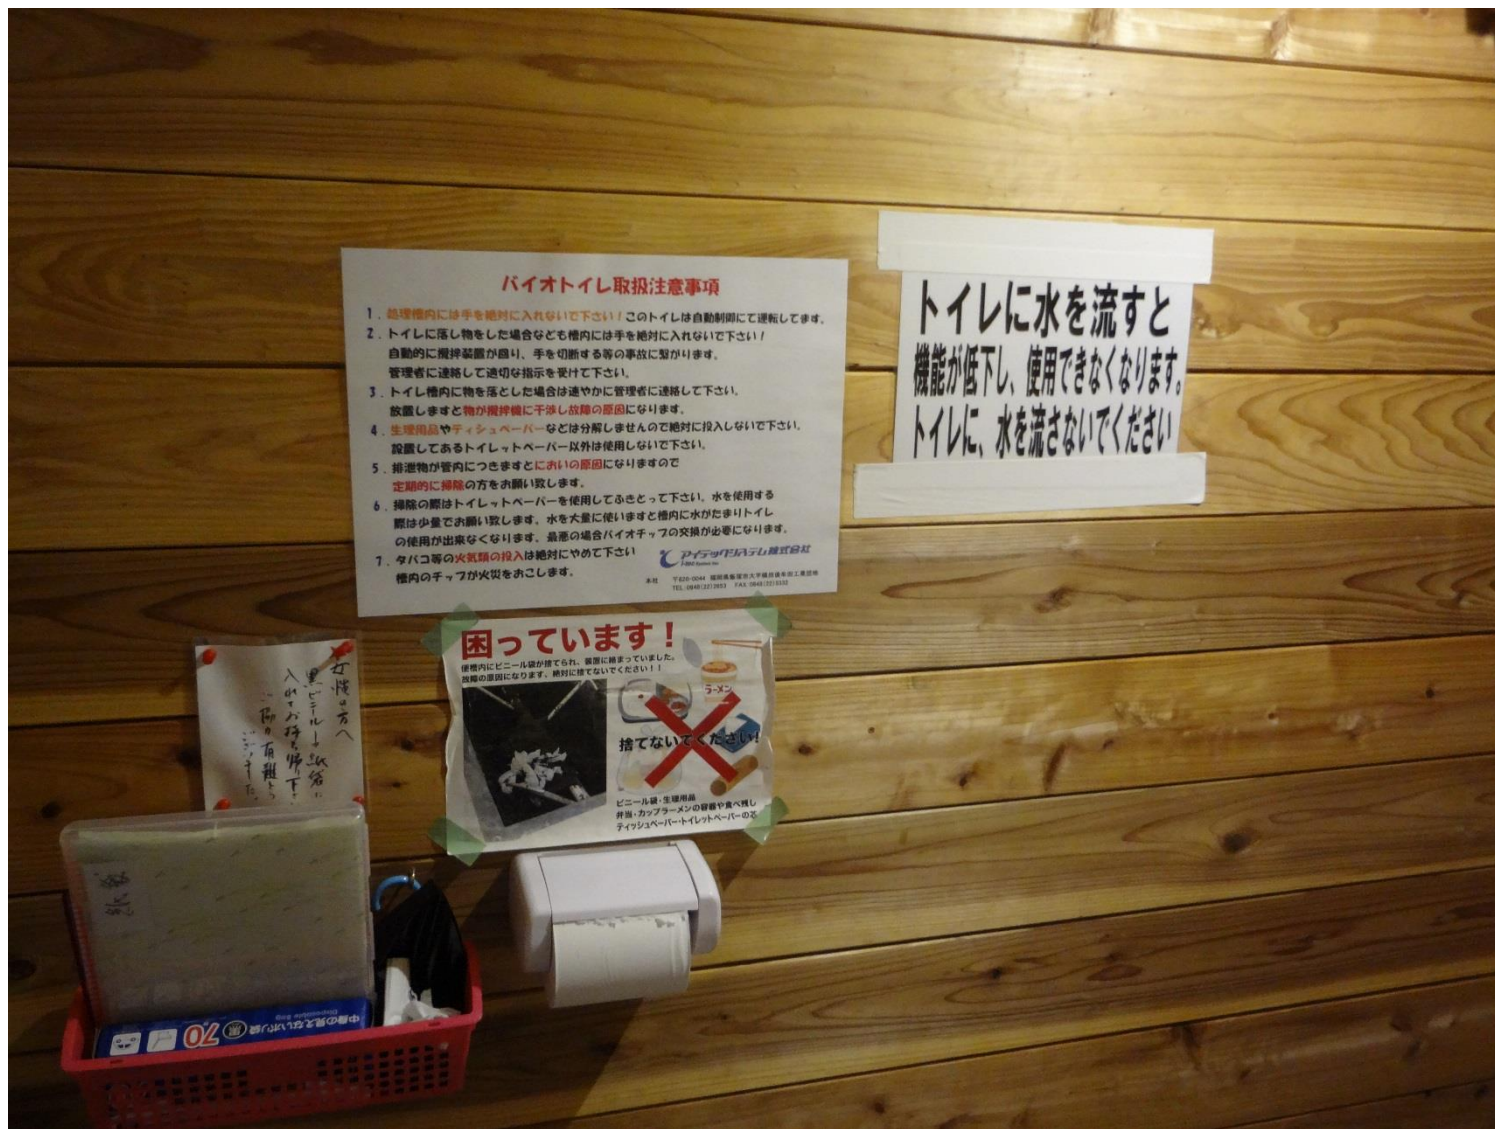 バイオトイレ取扱注意事項
1．処理槽内には手を絶対に入れないで下さい！このトイレは自動制御にて運転してます。
2．トイレに落し物をした場合なども槽内には手を絶対に入れないで下さい！
自動的に攪拌装置が回り、手を切断する等の事故に繋がります。
管理者に連絡して適切な指示を受けて下さい。
3．トイレ槽内に物を落とした場合は速やかに管理者に連絡して下さい。
放置しますと物が攪拌機に干渉し故障の原因になります。
4．生理用品やティシュペーパーなどは分解しませんので絶対に投入しないで下さい。
設置してあるトイレットペーパー以外は使用しないで下さい。
5．排泄物が管内につきますとにおいの原因になりますので
定期的に掃除の方をお願い致します。
6．掃除の際はトイレットペーパーを使用してふきとって下さい。水を使用する
際は少量でお願い致します。水を大量に使いますと槽内に水がたまりトイレ
の使用が出来なくなります。最悪の場合バイオチップの交換が必要になります。
7．タバコ等の火気類の投入は絶対にやめて下さい
槽内のチップが火災をおこします。
アイテックシステム株式会社
本社
トイレに水を流すと
機能が低下し、使用できなくなります。
トイレに、水を流さないでください
困っています！
便槽内にビニール袋が捨てられ、装置に絡まっていました。
故障の原因になります。絶対に捨てないでください！！
ラーメン
捨てないでください！
ビニール袋・生理用品
弁当・カップラーメンの容器や食べ残し
ティッシュペーパー・トイレットペーパーの芯
女性の方へ
黒ビニール→紙袋に
入れてお持ち帰り下さい
紙袋
中身の見えないポリ袋
Disposable Bag
黒
70